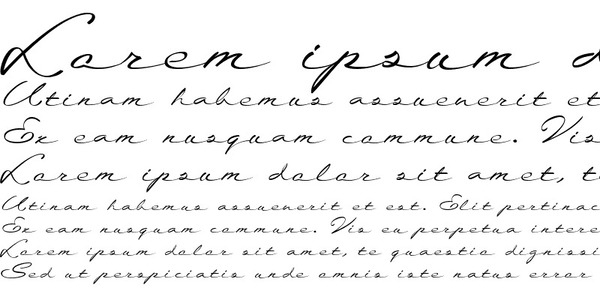 Lorem ipsum d
Utinam habemus assueverit et
Ex eam nusquam commune. Vis
Lorem ipsum dolor sit amet, t
Utinam habemus assueverit et est. Elit pertinac
Ex eam nusquam commune. Vis eu perpetua intere
Lorem ipsum dolor sit amet, te quaestio dignissi
Sed ut perspiciatis unde omnis iste natus error